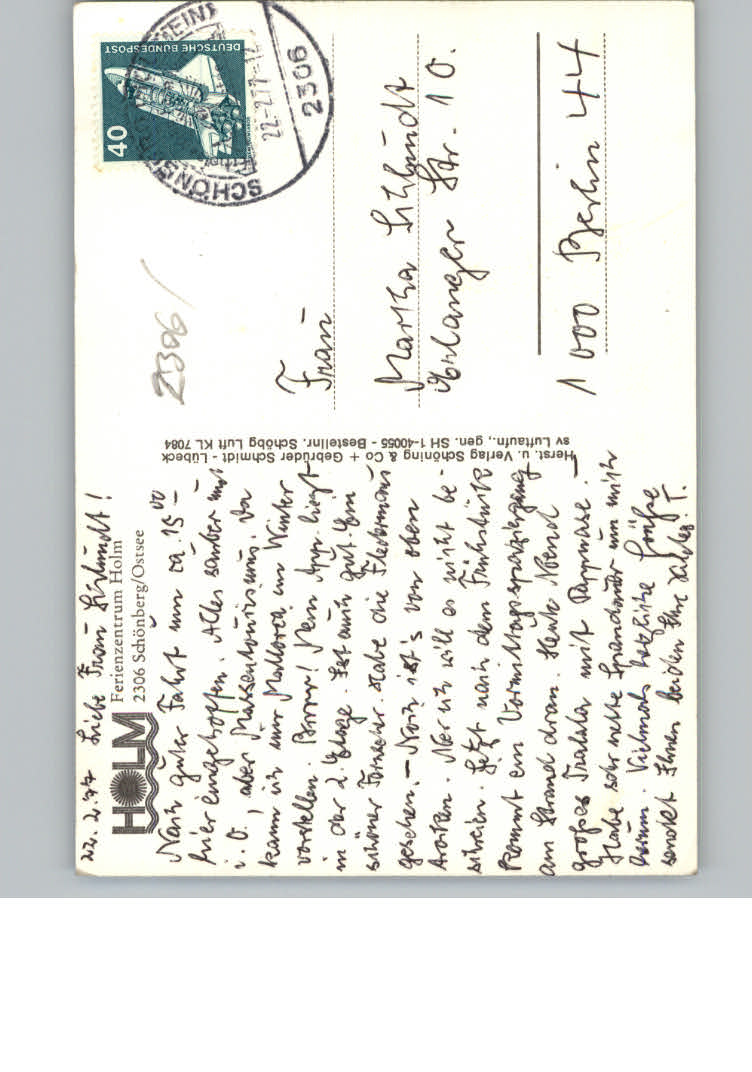 22.2.77 Liebe Frau Schlundt!
HOLM
Ferienzentrum Holm
2306 Schönberg/Ostsee
Nach guter Fahrt um ca. 15 00
hier eingetroffen. Alles sauber und
i. O., aber Massentourismus. Da
kann ich mir Mallorca im Winter
vorstellen. Brrrr! Mein App. liegt
in der 2. Etage. Ist auch gut. Ein
schöner Fernseher. Habe die Fledermaus
gesehen. – Noch ist's von oben
trocken. Aber ich will es nicht be-
schreien. Jetzt nach dem Frühstück
kommt ein Vormittagsspaziergang
am Strand dran. Heute Abend
großes Tralala mit Pappnase. –
Habe sehr nette Spandauer um mich
herum. Vielmals herzliche Grüße
sendet Ihnen beiden Ihre T.
Herst. u. Verlag Schöning & Co + Gebrüder Schmidt - Lübeck
sv Luftaufn., gen. SH 1-40055 - Bestellnr. Schöbg Luft KL 7084
2306/
DEUTSCHE BUNDESPOST
40
SCHÖNBERG
22-2.77-12
2306
Frau
Martha Schlundt
Erlanger Str. 10.
1000 Berlin 44